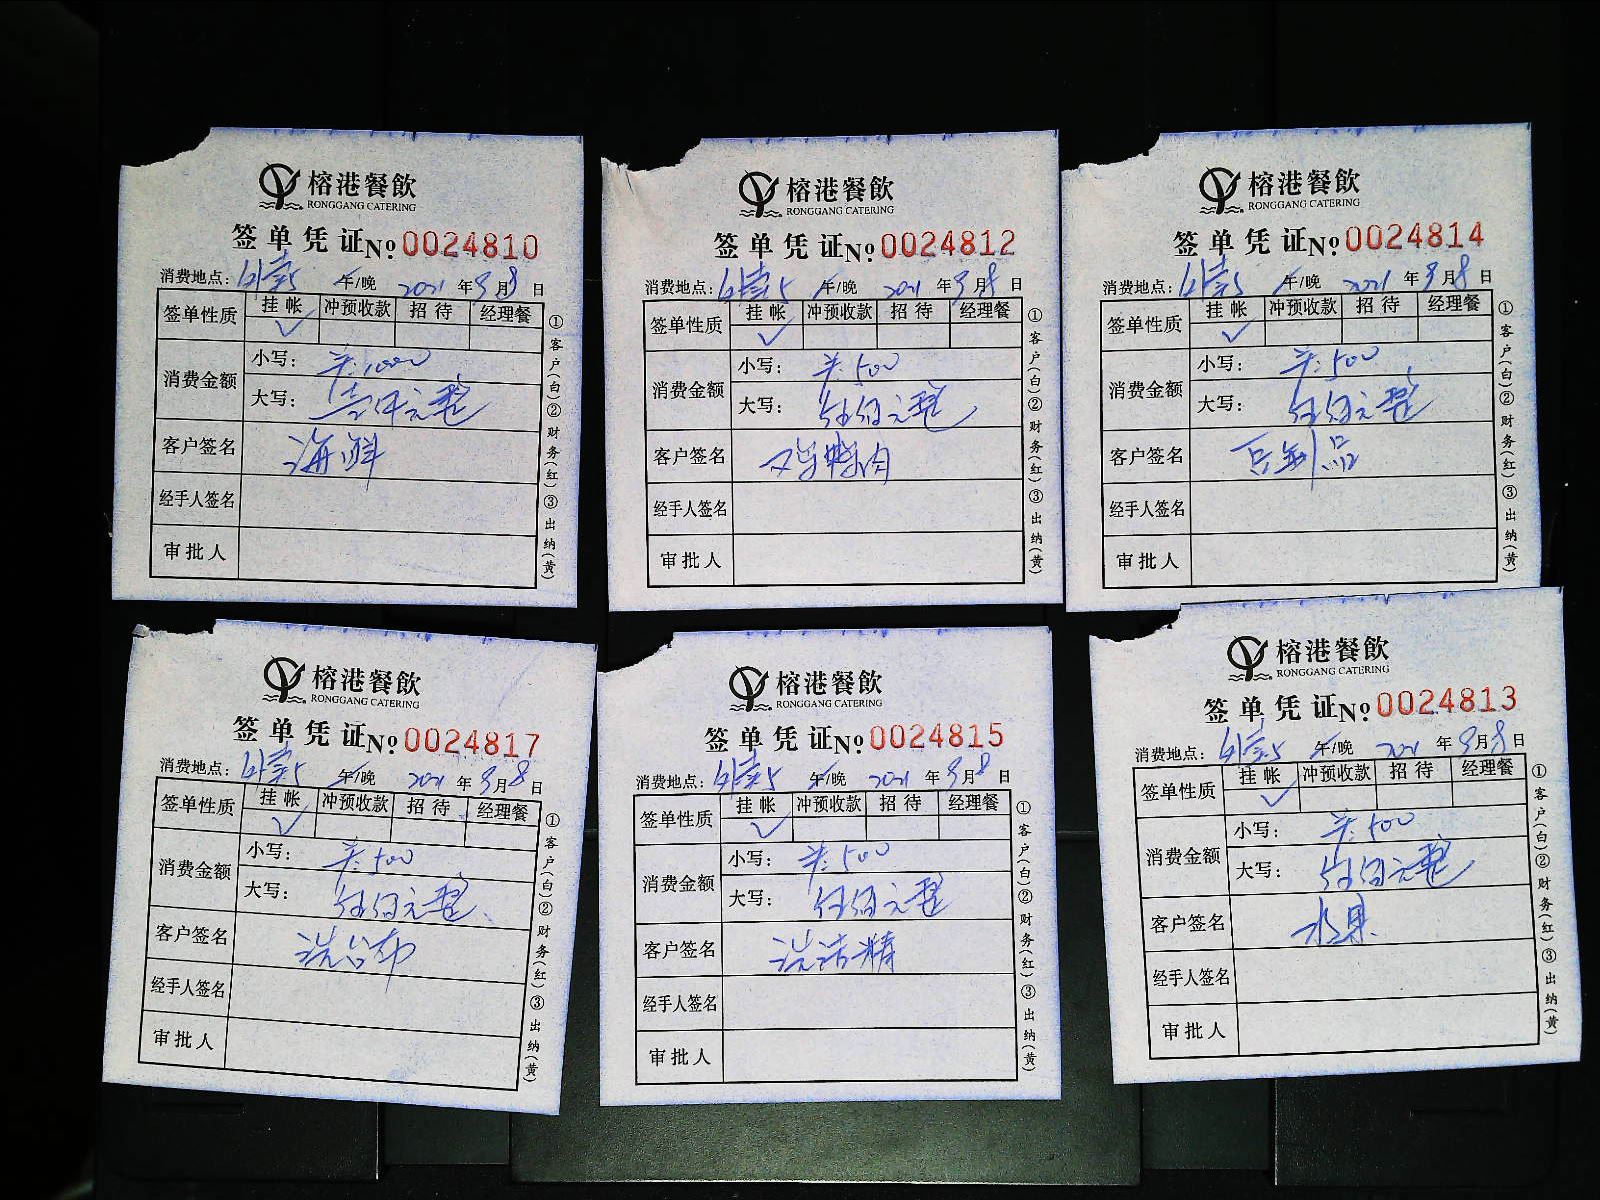 榕港餐飲
RONGGANG CATERING
签单凭证№0024810
消费地点: 午/晚 2021年9月8日
签单性质 挂帐 冲预收款 招待 经理餐
✓
消费金额 小写: 1000
大写: 壹仟元整
客户签名 海鲜
经手人签名
审批人
①客户(白)②财务(红)③出纳(黄)
榕港餐飲
RONGGANG CATERING
签单凭证№0024812
消费地点: 午/晚 2021年9月8日
签单性质 挂帐 冲预收款 招待 经理餐
✓
消费金额 小写: 500
大写: 伍佰元整
客户签名
经手人签名
审批人
①客户(白)②财务(红)③出纳(黄)
榕港餐飲
RONGGANG CATERING
签单凭证№0024814
消费地点: 午/晚 2021年9月8日
签单性质 挂帐 冲预收款 招待 经理餐
✓
消费金额 小写: 500
大写: 伍佰元整
客户签名 豆制品
经手人签名
审批人
①客户(白)②财务(红)③出纳(黄)
榕港餐飲
RONGGANG CATERING
签单凭证№0024817
消费地点: 午/晚 2021年9月8日
签单性质 挂帐 冲预收款 招待 经理餐
✓
消费金额 小写: 500
大写: 伍佰元整
客户签名 洗台布
经手人签名
审批人
①客户(白)②财务(红)③出纳(黄)
榕港餐飲
RONGGANG CATERING
签单凭证№0024815
消费地点: 午/晚 2021年9月8日
签单性质 挂帐 冲预收款 招待 经理餐
✓
消费金额 小写: 500
大写: 伍佰元整
客户签名 洗洁精
经手人签名
审批人
①客户(白)②财务(红)③出纳(黄)
榕港餐飲
RONGGANG CATERING
签单凭证№0024813
消费地点: 午/晚 2021年9月8日
签单性质 挂帐 冲预收款 招待 经理餐
✓
消费金额 小写: 500
大写: 伍佰元整
客户签名 水果
经手人签名
审批人
①客户(白)②财务(红)③出纳(黄)